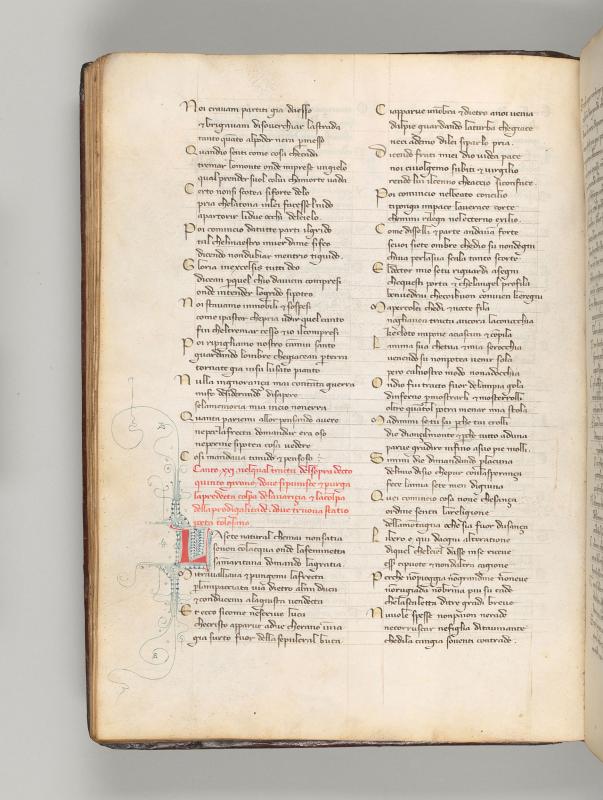 Noi eravam partiti gia daesso
et brigavam disoverchiar lastrada
tanto quanto alpoder nera pmesso
Quandio senti come cosa checada
tremar lomonte onde miprese ungielo
qual prender suol colui chamorte vada
Certo nonsi scotea siforte delo
pria chelatona inlei facesse lnido
apartorir lidue occhi delcielo
Poi comincio datutte parti ilgrido
tal chelmaestro inver dime sifeo
dicendo nondubiar mentrio tiguido
Gloria inexcelsis tutti deo
dicean pquel chio davicin compresi
onde intender logrido sipoteo
Noi stavamo immobili et sospesi
come ipastor chepria udir quel canto
fin cheltremar cesso et io ilcompresi
Poi ripigliamo nostro camin santo
guardando lombre chegiacean pterra
tornate gia insu lusato pianto
Nulla ingnoranza mai contanta guerra
mife desiderando disapere
selamemoria mia incio nonerra
Quanta pariemi allor pensando avere
neperlafretta domandar era oso
neperme sipotea cosa vedere
Cosi mandava timido et pensoso
Canto xxj nelqual tratta delsopradecto
quinto girone dove sipunisce et purga
lapredetta colpa delavaritia et lacolpa
dellaprodigalitade. dove truova statio
poeta tolosano
La sete natural chemai nonsatia
senon colacqua onde lafeminetta
samaritana domando lagratia
Mitravagliava et pungemi lafretta
plampacciata via dietro almi duca
et condoleami alagiusta vendetta
Et ecco sicome nescrive luca
checristo apparve adue cherano invia
gia surto fuor della sepulcral buca
Ciapparve unombra et dietro anoi venia
dalpie guardando laturba chegiace
neci ademo dilei siparlo pria
Dicendo frati miei dio videa pace
noi civolgemo subiti et virgilio
rendeli ilcenno cheaccio siconface
Poi comincio nelbeato concilio
tiponga inpace laverace corte
chemmi rilega neletterno exilio
Come dissegli et parte andavam forte
sevoi siete ombre chedio su nondegni
chiva perlasua scala tanto scorte
Eldotor mio setu riguardi asegni
chequesti porta et chelangel profila
benvedrai checoibuon convien keregni
Mapercolei chedi et notte fila
nogliavea tratta ancora laconocchia
kecloto impone aciascun et compila
Lanima sua chetua et mia serocchia
venendo su nonpotea venir sola
pero calnostro modo nonadocchia
Ondio fui tracto fuor delampia gola
dinferno pmostrarli et mosterrolli
oltre quantol potra menar mia scola
Madimmi setu sai pche tai crolli
die dianzi lmonte et pche tutto aduna
parve gridare infino asuo pie molli
Simmi die dimandando placruna
delmio disio chepur conlasperanza
fece lamia sete men digiuna
Quei comincio cosa none chesanza
ordine senta lareligione
dellamontagna oche sia fuor dusanza
Libero e qui daogni alteratione
diquel chelciel dasse inse riceve
esser cipuote et nondaltra cagione
Perche nopioggia nograndine noneve
norugiada nobrina piu su cade
chelascaletta ditre gradi breve
Nuvole spesse nonpaion ne rade
necorruscar nefiglia ditaumante
chedila cangia sovente contrade